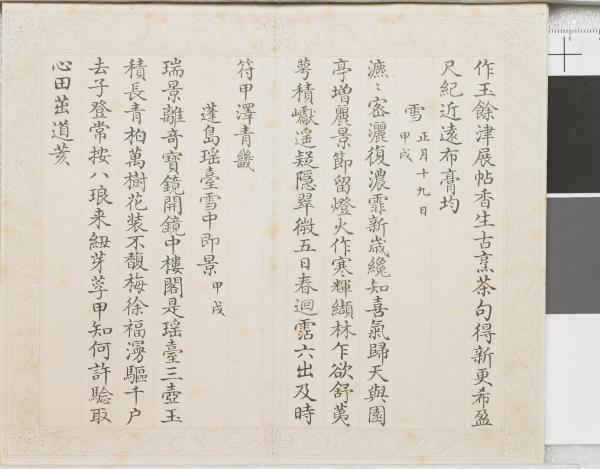 作玉餘津展帖香生古烹茶句得新更希盈
尺紀近遠布膏均
雪 正月十九日 甲戌
瀌〻密灑復濃霏新嵗纔知喜氣歸天與園
亭增麗景節留燈火作寒輝纈林乍欲舒萸
萼積巘遥疑隱翠微五日春迴霑六出及時
符甲澤青畿
蓬島瑶臺雪中即景 甲戌
瑞景離奇寶鏡開鏡中樓閣是瑶臺三壺玉
積長青柏萬樹花装不馥梅徐福漫驅千户
去子登常按八琅来紐芽莩甲知何許驗取
心田茁道荄